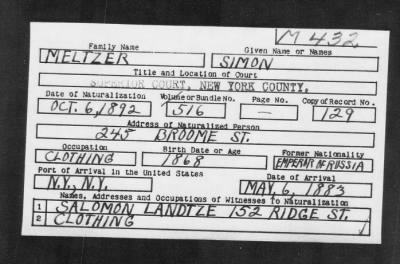 M 432
Family Name Given Name or Names
MELTZER SIMON
Title and Location of Court
SUPERIOR COURT, NEW YORK COUNTY.
Date of Naturalization Volume or Bundle No. Page No. Copy of Record No.
OCT. 6, 1892 516 — 129
Address of Naturalized Person
245 BROOME ST.
Occupation Birth Date or Age Former Nationality
CLOTHING 1868 EMPEROR OF RUSSIA
Port of Arrival in the United States Date of Arrival
N.Y., N.Y. MAY, 6, 1883
Names, Addresses and Occupations of Witnesses to Naturalization
1 SALOMON LANDTZE 152 RIDGE ST.
2 CLOTHING